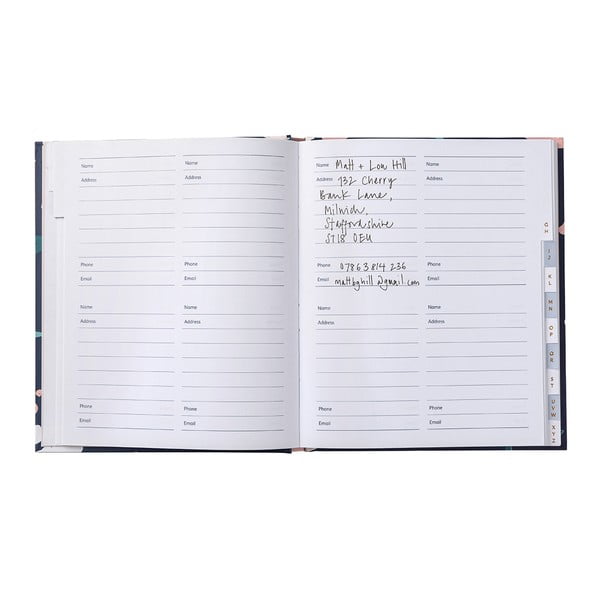 Name
Address
Phone
Email
Name
Address
Phone
Email
Name
Address
Phone
Email
Name
Address
Phone
Email
Name Matt + Lou Hill
Address 132 Cherry
Bank Lane,
Milwich,
Staffordshire
ST18 0EU
Phone 07863 814 236
Email mattbghill@gmail.com
Name
Address
Phone
Email
Name
Address
Phone
Email
Name
Address
Phone
Email
G
H
I
J
K
L
M
N
O
P
Q
R
S
T
U V
W
X
Y Z